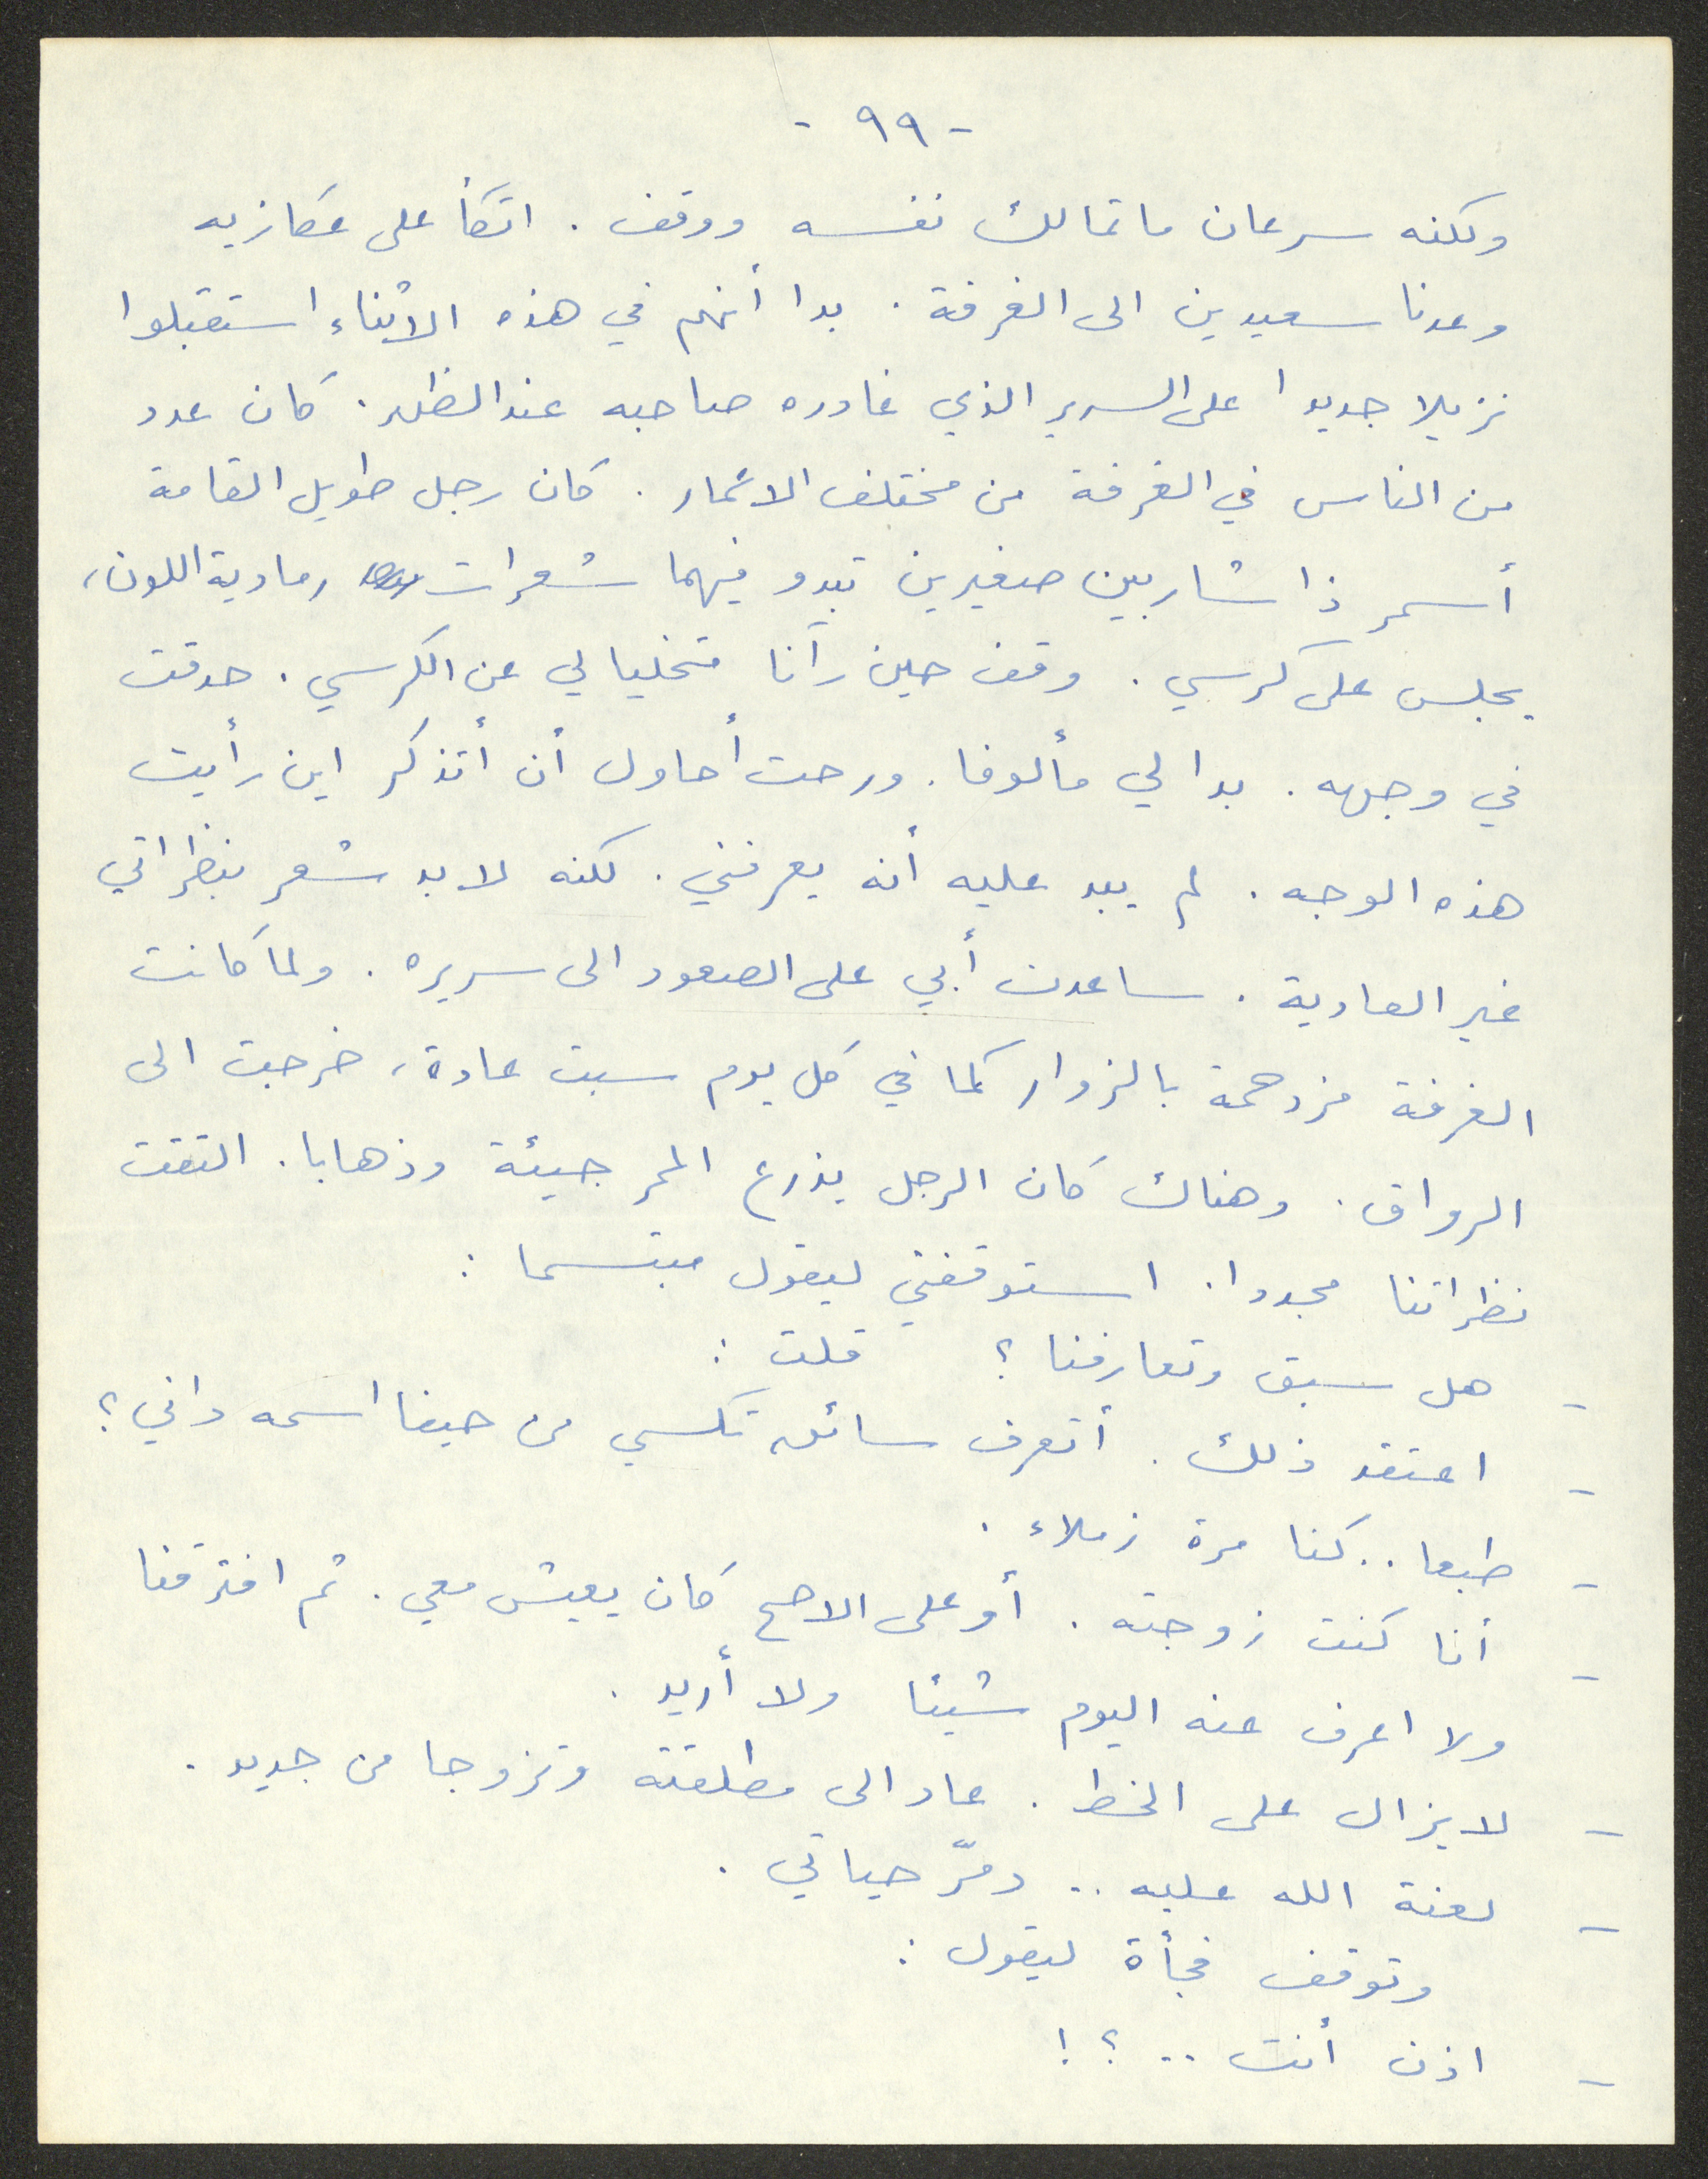 - ٩٩ -
ولكنه سرعان ما تمالك نفسه ووقف . اتكأ على عكازيه
وعدنا سعيدين الى الغرفة . بدا أنهم في هذه الاثناء استقبلوا
نزيلا جديدا على السرير الذي غادره صاحبه عند الظهر . كان عدد
من الناس في الغرفة من مختلف الاعمار . كان رجل طويل القامة
أسمر ذا شاربين صغيرين تبدو فيهما شعرات رمادية اللون،
يجلس على كرسي . وقف حين رآنا متخليا لي عن الكرسي . حدقت
في وجهه . بدا لي مألوفا . ورحت أحاول أن أتذكر اين رأيت
هذه الوجه . لم يبد عليه أنه يعرفني . لكنه لا بد شعر بنظراتي
غير العادية . ساعدت أبي على الصعود الى سريره . ولما كانت
الغرفة مزدحمة بالزوار كما في كل يوم سبت عادة، خرجت الى
الرواق . وهناك كان الرجل يذرع الممر جيئة وذهابا . التقت
نظراتنا مجددا . استوقفني ليقول مبتسما :
- هل سبق وتعارفنا ؟ قلت :
- اعتقد ذلك . أتعرف سائق تكسي من حيفا اسمه داني ؟
- طبعا .. كنا مرة زملاء .
- أنا كنت زوجته . أو على الاصح كان يعيش معي . ثم افترقنا
ولا اعرف عنه اليوم شيئا ولا أريد .
- لا يزال على الخط . عاد الى مطلقته وتزوجا من جديد .
- لعنة الله عليه .. دمّر حياتي .
وتوقف فجأة ليقول :
- اذن أنت .. ؟ !